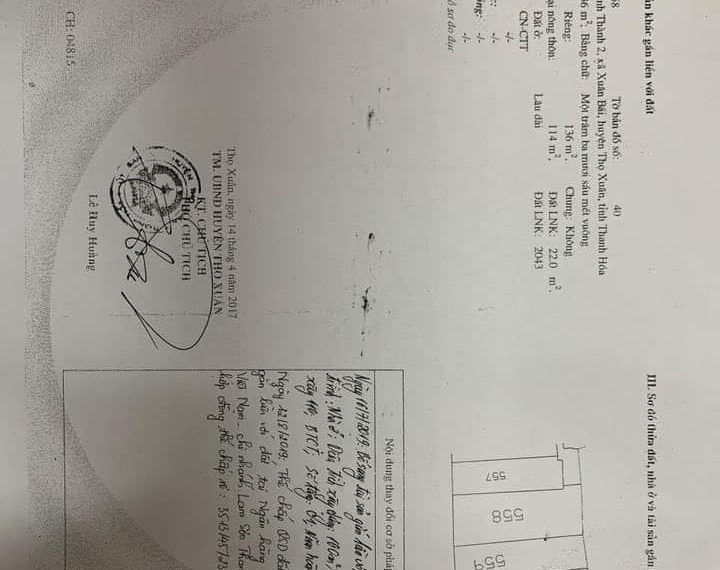 ản khác gắn liền với đất
58 Tờ bản đồ số: 40
nh Thành 2, xã Xuân Bái, huyện Thọ Xuân, tỉnh Thanh Hóa
36 m², Bằng chữ: Một trăm ba mươi sáu mét vuông
Riêng: 136 m², Chung: Không
ại nông thôn: 114 m², Đất LNK: 22.0 m².
Đất ở: Lâu dài Đất LNK: 2043
CN-CTT
-/-
: -/-
ộng: -/-
-/-
ồ sơ đo đạc
Thọ Xuân, ngày 14 tháng 4 năm 2017
TM. UBND HUYỆN THỌ XUÂN
KT. CHỦ TỊCH
PHÓ CHỦ TỊCH
Lê Huy Hoàng
CH: 04815
III. Sơ đồ thửa đất, nhà ở và tài sản gắn
557
558
559
Nội dung thay đổi cơ sở pháp
Ngày 16/7/2019, Bổ sung tài sản gắn liền với
xây
Ngày 12/8/2019, Thế chấp QSD đất
gắn liền với đất tại Ngân hàng
Việt Nam - chi nhánh Lam Sơn Than
hợp đồng thế chấp số: